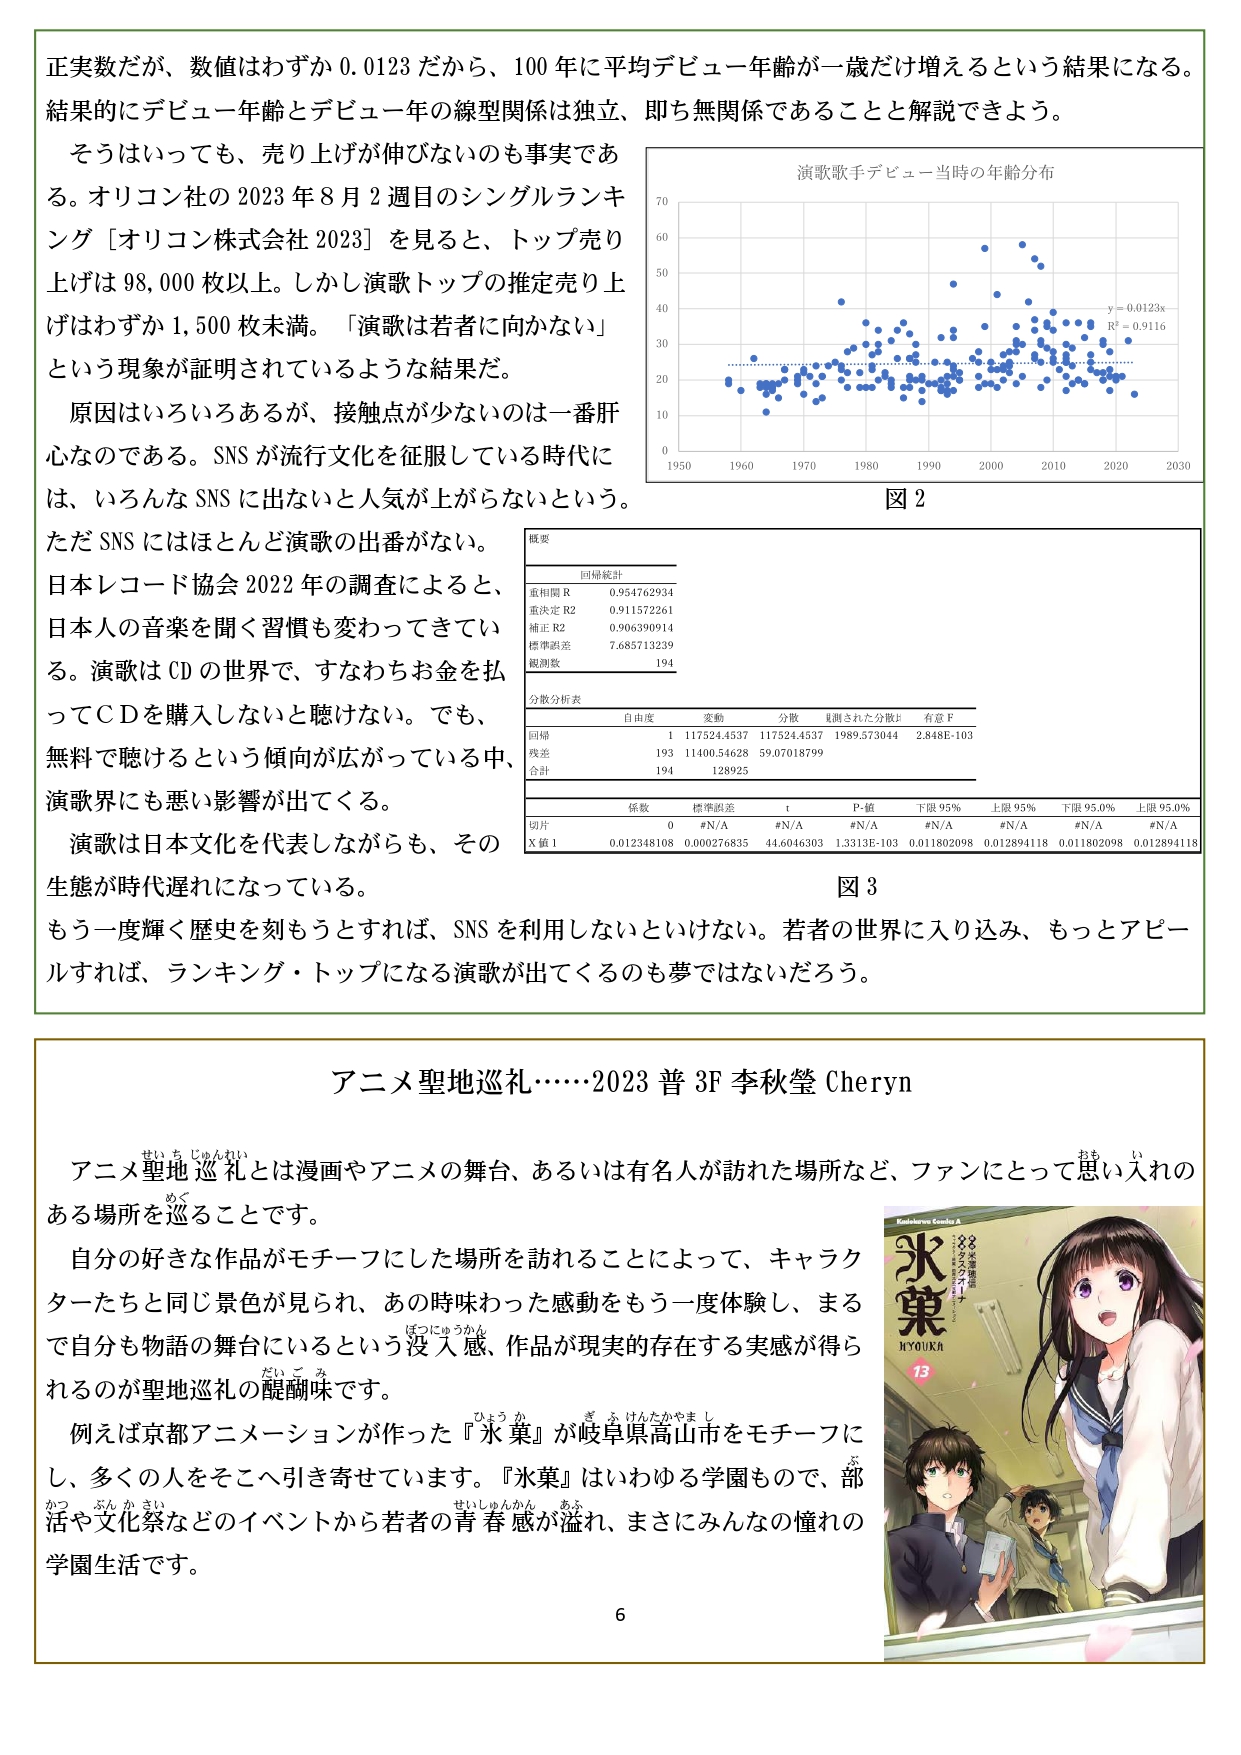 正実数だが、数値はわずか 0.0123 だから、100 年に平均デビュー年齢が一歳だけ増えるという結果になる。
結果的にデビュー年齢とデビュー年の線型関係は独立、即ち無関係であることと解説できよう。
そうはいっても、売り上げが伸びないのも事実であ
る。オリコン社の 2023 年８月 2 週目のシングルランキ
ング［オリコン株式会社 2023］を見ると、トップ売り
上げは 98,000 枚以上。しかし演歌トップの推定売り上
げはわずか 1,500 枚未満。「演歌は若者に向かない」
という現象が証明されているような結果だ。
原因はいろいろあるが、接触点が少ないのは一番肝
心なのである。SNS が流行文化を征服している時代に
は、いろんな SNS に出ないと人気が上がらないという。
演歌歌手デビュー当時の年齢分布
70
60
50
40
30
20
10
0
y = 0.0123x
R² = 0.9116
1950 1960 1970 1980 1990 2000 2010 2020 2030
図 2
ただ SNS にはほとんど演歌の出番がない。
日本レコード協会 2022 年の調査によると、
日本人の音楽を聞く習慣も変わってきてい
る。演歌は CD の世界で、すなわちお金を払
ってＣＤを購入しないと聴けない。でも、
無料で聴けるという傾向が広がっている中、
演歌界にも悪い影響が出てくる。
演歌は日本文化を代表しながらも、その
生態が時代遅れになっている。
概要
回帰統計
重相関 R 0.954762934
重決定 R2 0.911572261
補正 R2 0.906390914
標準誤差 7.685713239
観測数 194
分散分析表
自由度 変動 分散 観測された分散比 有意 F
回帰 1 117524.4537 117524.4537 1989.573044 2.848E-103
残差 193 11400.54628 59.07018799
合計 194 128925
係数 標準誤差 t P-値 下限 95% 上限 95% 下限 95.0% 上限 95.0%
切片 0 #N/A #N/A #N/A #N/A #N/A #N/A #N/A
X 値 1 0.012348108 0.000276835 44.6046303 1.3313E-103 0.011802098 0.012894118 0.011802098 0.012894118
図 3
もう一度輝く歴史を刻もうとすれば、SNS を利用しないといけない。若者の世界に入り込み、もっとアピー
ルすれば、ランキング・トップになる演歌が出てくるのも夢ではないだろう。
アニメ聖地巡礼……2023 普 3F 李秋瑩 Cheryn
せい ち じゅんれい おも い
アニメ聖地巡礼とは漫画やアニメの舞台、あるいは有名人が訪れた場所など、ファンにとって思い入れの
めぐ
ある場所を巡ることです。
自分の好きな作品がモチーフにした場所を訪れることによって、キャラク
ターたちと同じ景色が見られ、あの時味わった感動をもう一度体験し、まる
ぼつにゅうかん
で自分も物語の舞台にいるという没入感、作品が現実的存在する実感が得ら
だい ご み
れるのが聖地巡礼の醍醐味です。
ひょう か ぎ ふ けんたかやま し
例えば京都アニメーションが作った『氷菓』が岐阜県高山市をモチーフに
ぶ
し、多くの人をそこへ引き寄せています。『氷菓』はいわゆる学園もので、部
かつ ぶん か さい せいしゅんかん あふ
活や文化祭などのイベントから若者の青春感が溢れ、まさにみんなの憧れの
学園生活です。
Kadokawa Comics A
氷菓
HYOUKA
13
米澤穂信
タスクオーナ
6